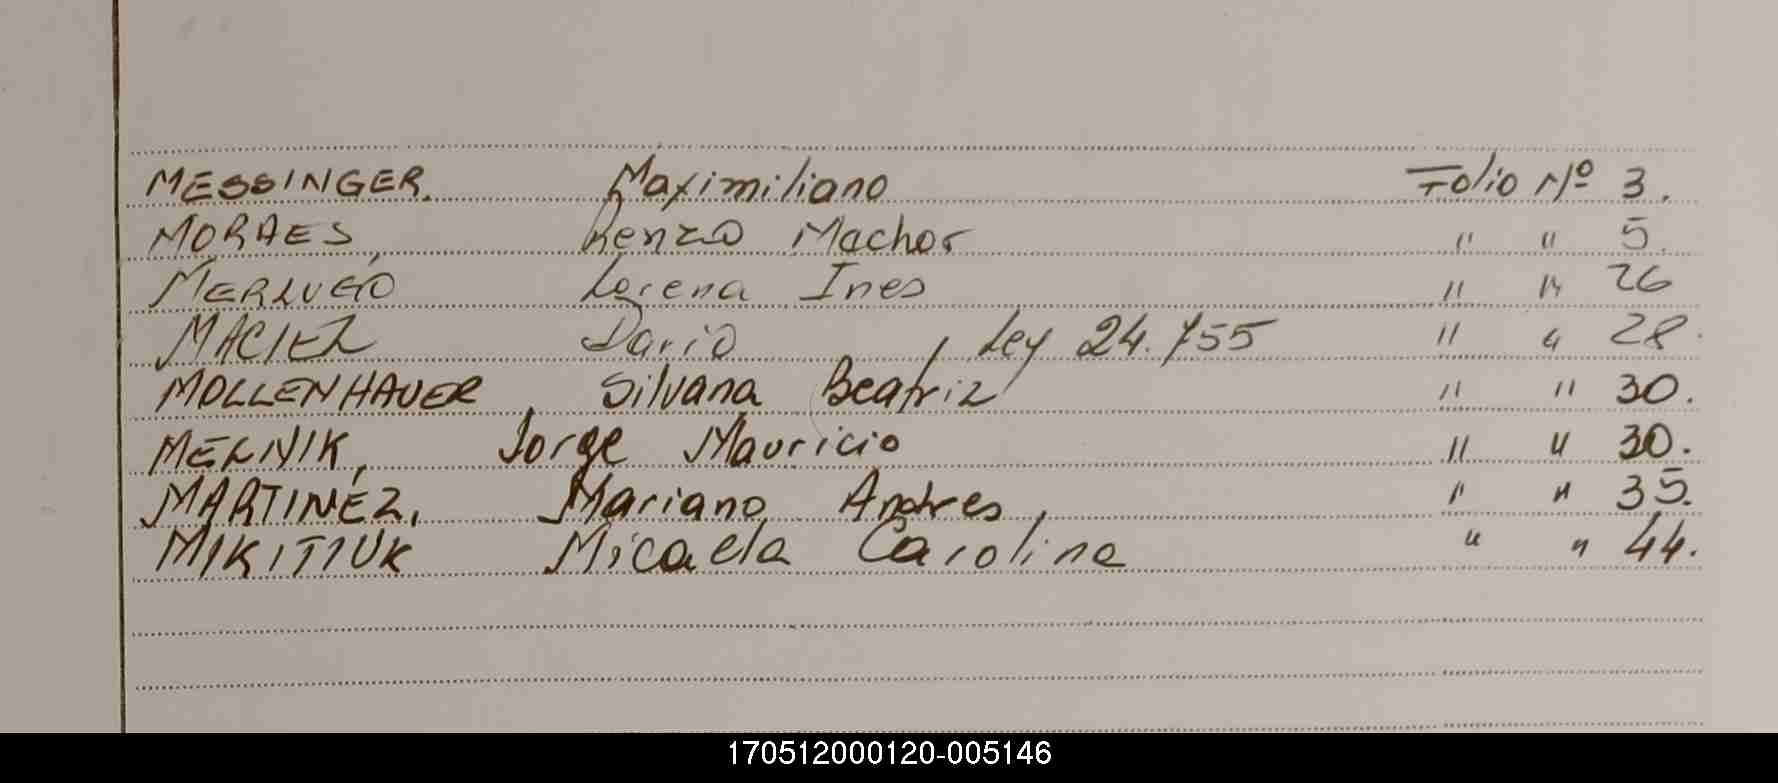 MESSINGER. Maximiliano Folio Nº 3.
MORAES, Renzo Machor " " 5.
Lorena Ines " " 26
MACIEL Dario, Ley 24.755 " " 28.
MOLLENHAUER, Silvana Beatriz " " 30.
MELNIK, Jorge Mauricio " " 30.
MARTINEZ, Mariano Andres, " " 35.
MIKITIUK Micaela Carolina " " 44.
170512000120-005146